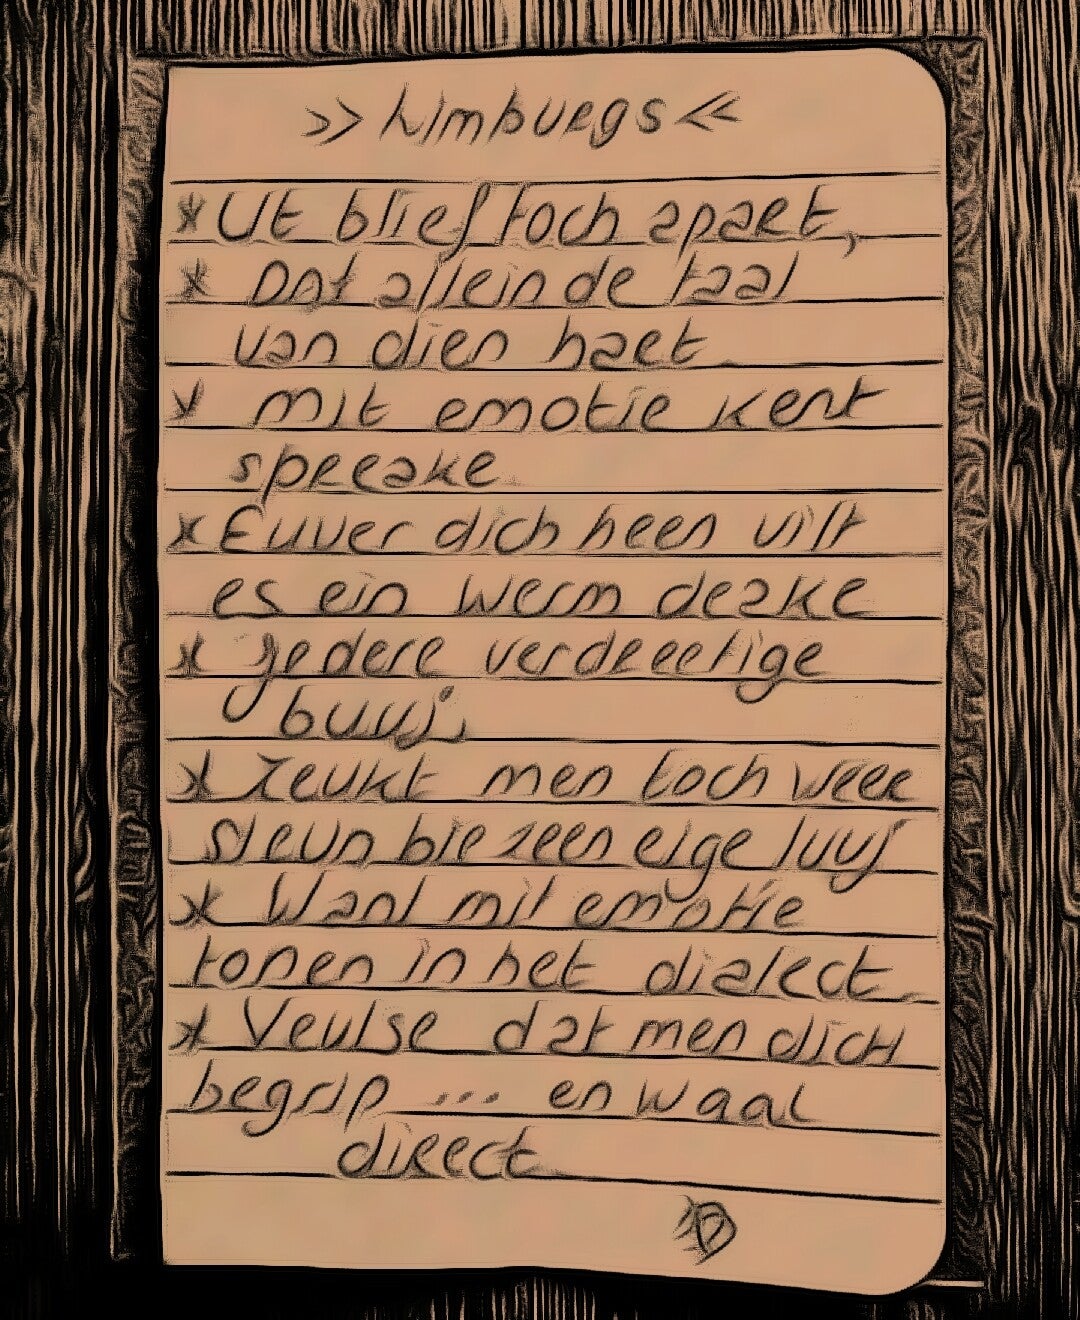 >> Limburgs <<
* Ut blief toch apart,
* Dat allein de taal
van dien haet
* mit emotie kent
spreake
* Euver dich heen vilt
es ein werm deake
* Jedere verdreetige
buuj,
* Zeukt men toch weer
steun bie zeen eige luuj
* Want mit emotie
tonen in het dialect
* Veulse dat men dich
begrip ... en waal
direct